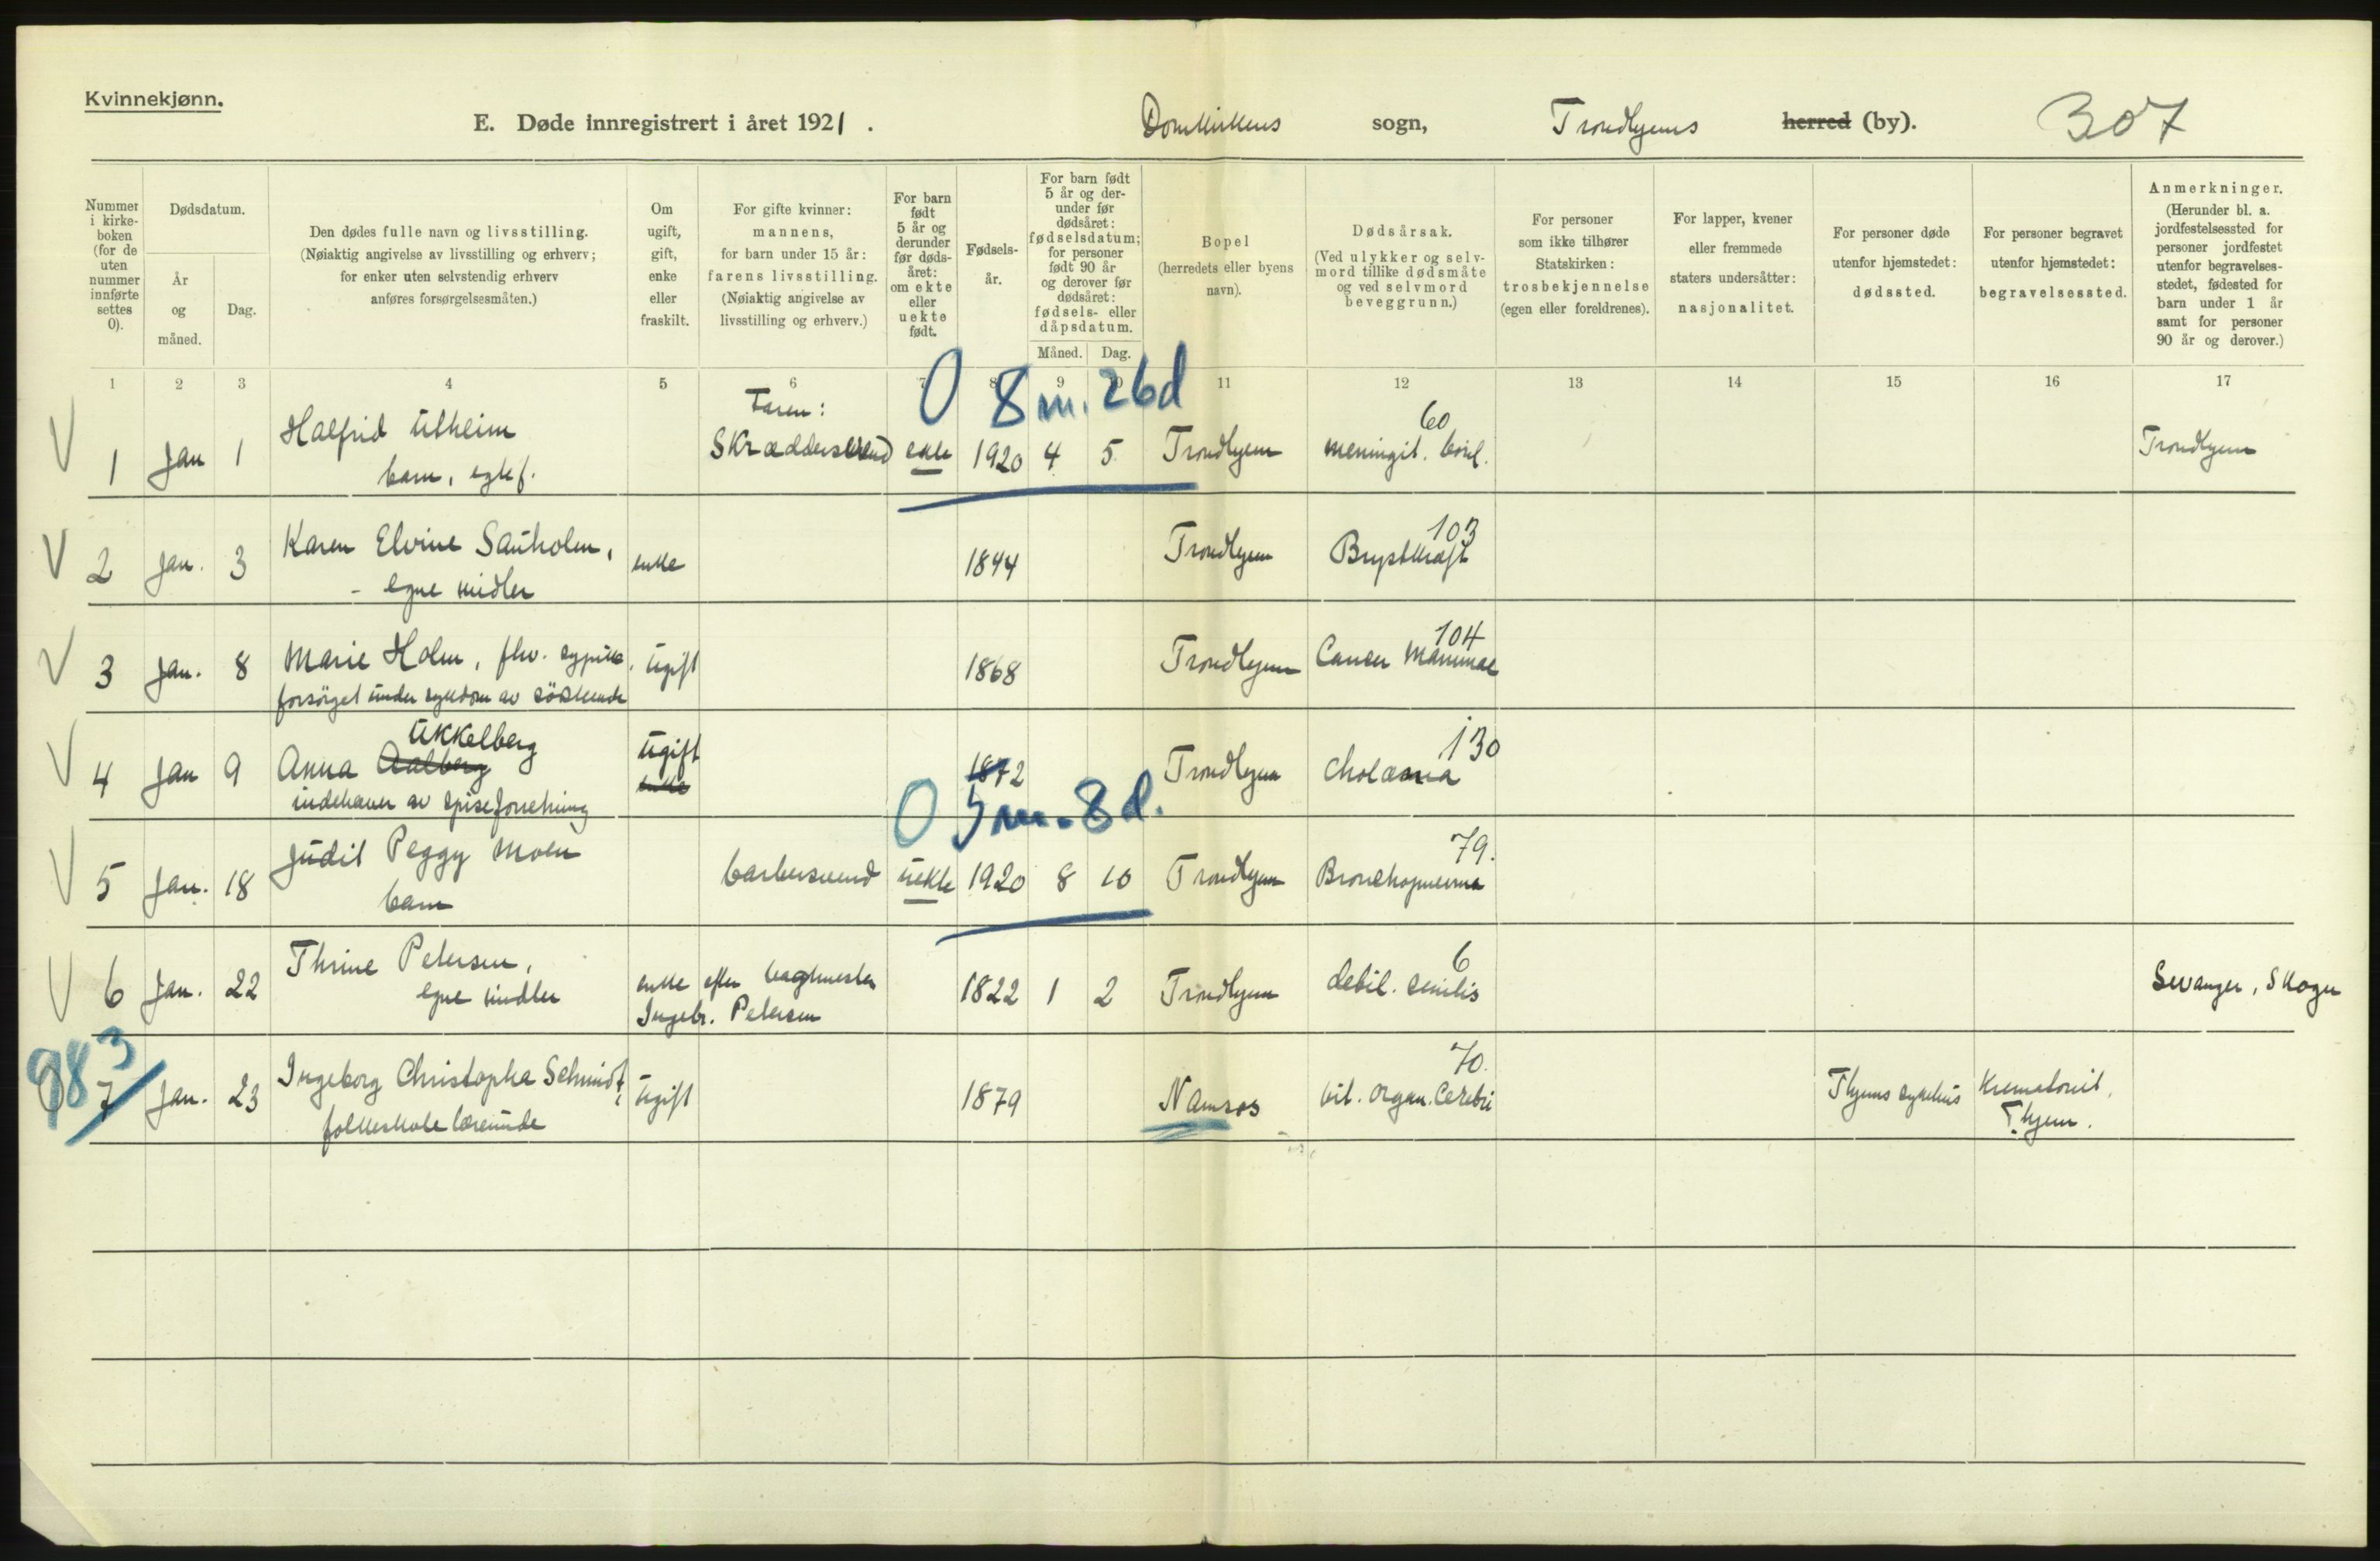 Kvinnekjønn.
E. Døde innregistrert i året 1921 . Domkirkens sogn, Trondhjems herred (by). 307
Nummer i kirkeboken (for de uten nummer innførte settes 0).
Dødsdatum.
År og måned.
Dag.
Den dødes fulle navn og livsstilling.
(Nøiaktig angivelse av livsstilling og erhverv;
for enker uten selvstendig erhverv
anføres forsørgelsesmåten.)
Om ugift, gift, enke eller fraskilt.
For gifte kvinner:
mannens,
for barn under 15 år:
farens livsstilling.
(Nøiaktig angivelse av
livsstilling og erhverv.)
For barn født 5 år og derunder før dødsåret: om ekte eller uekte født.
Fødselsår.
For barn født 5 år og derunder før dødsåret: fødselsdatum; for personer født 90 år og derover før dødsåret: fødsels- eller dåpsdatum.
Måned. Dag.
Bopel
(herredets eller byens
navn).
Dødsårsak.
(Ved ulykker og selvmord tillike dødsmåte og ved selvmord beveggrunn.)
For personer
som ikke tilhører
Statskirken:
trosbekjennelse
(egen eller foreldrenes).
For lapper, kvener
eller fremmede
staters undersåtter:
nasjonalitet.
For personer døde
utenfor hjemstedet:
dødssted.
For personer begravet
utenfor hjemstedet:
begravelsessted.
Anmerkninger.
(Herunder bl. a. jordfestelsessted for personer jordfestet utenfor begravelsesstedet, fødested for barn under 1 år samt for personer 90 år og derover.)
1 2 3 4 5 6 7 8 9 10 11 12 13 14 15 16 17
0 8 m. 26d
Faren: 60
V 1 Jan 1 Halfrid Utheim Skræddersvend ekte 1920 4 5 Trondhjem meningit. Trondhjem
barn, egtef.
103
V 2 Jan. 3 Karen Elvine Sauholm, enke 1844 Trondhjem Brystkræft
- egne midler
104
V 3 Jan. 8 Marie Holm, fhv. sypike, ugift 1868 Trondhjem Cancer Mammae
forsørget under sykdom av søskende
Ukkelberg ugift 130
V 4 Jan 9 Anna Aalberg enke 1872 Trondhjem cholæmia
indehaver av spiseforretning
0 5 m. 8 d.
79.
V 5 Jan. 18 Judit Peggy Moen barbersvend uekte 1920 8 10 Trondhjem Bronchopneumonia
barn
6
V 6 Jan. 22 Thrine Petersen, enke efter 1822 1 2 Trondhjem debil. senilis
egne midler Ingebr. Petersen
983 70.
7 Jan. 23 Ingeborg Christopha Schmidt, ugift 1879 Namsos vit. organ. Cerebri Thjems sykehus Krematoriet,
folkeskole lærerinde Thjem.